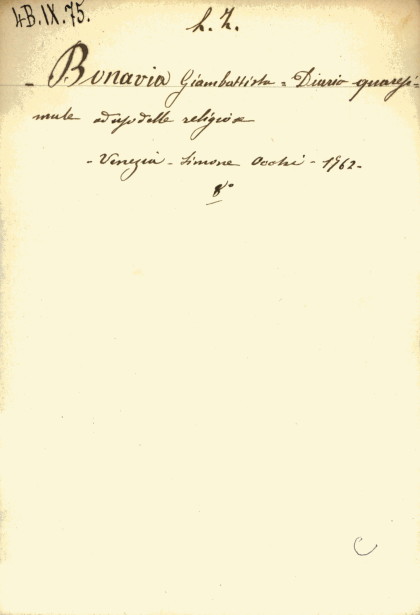 4B.IX.75.
h. 7.
- Bonavia Giambattista = Diario quaresi-
male ad uso delle religiose
- Venezia - Simone Occhi - 1762 -
8°
C